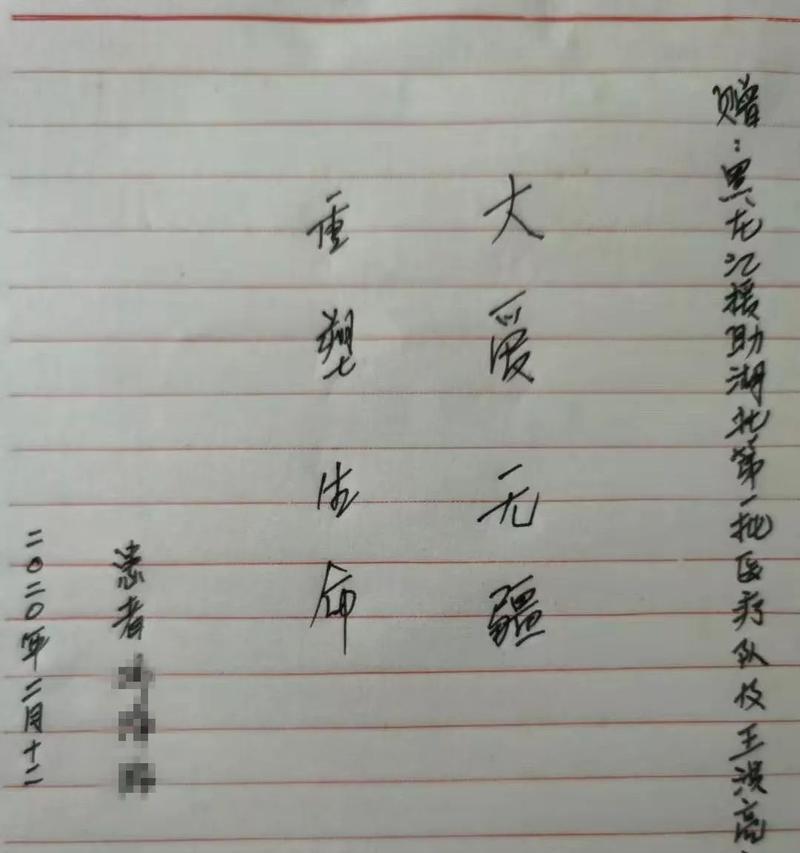 赠：黑龙江援助湖北第一批医疗队及王洪高
大爱无疆
重塑生命
患者
二〇二〇年二月十二